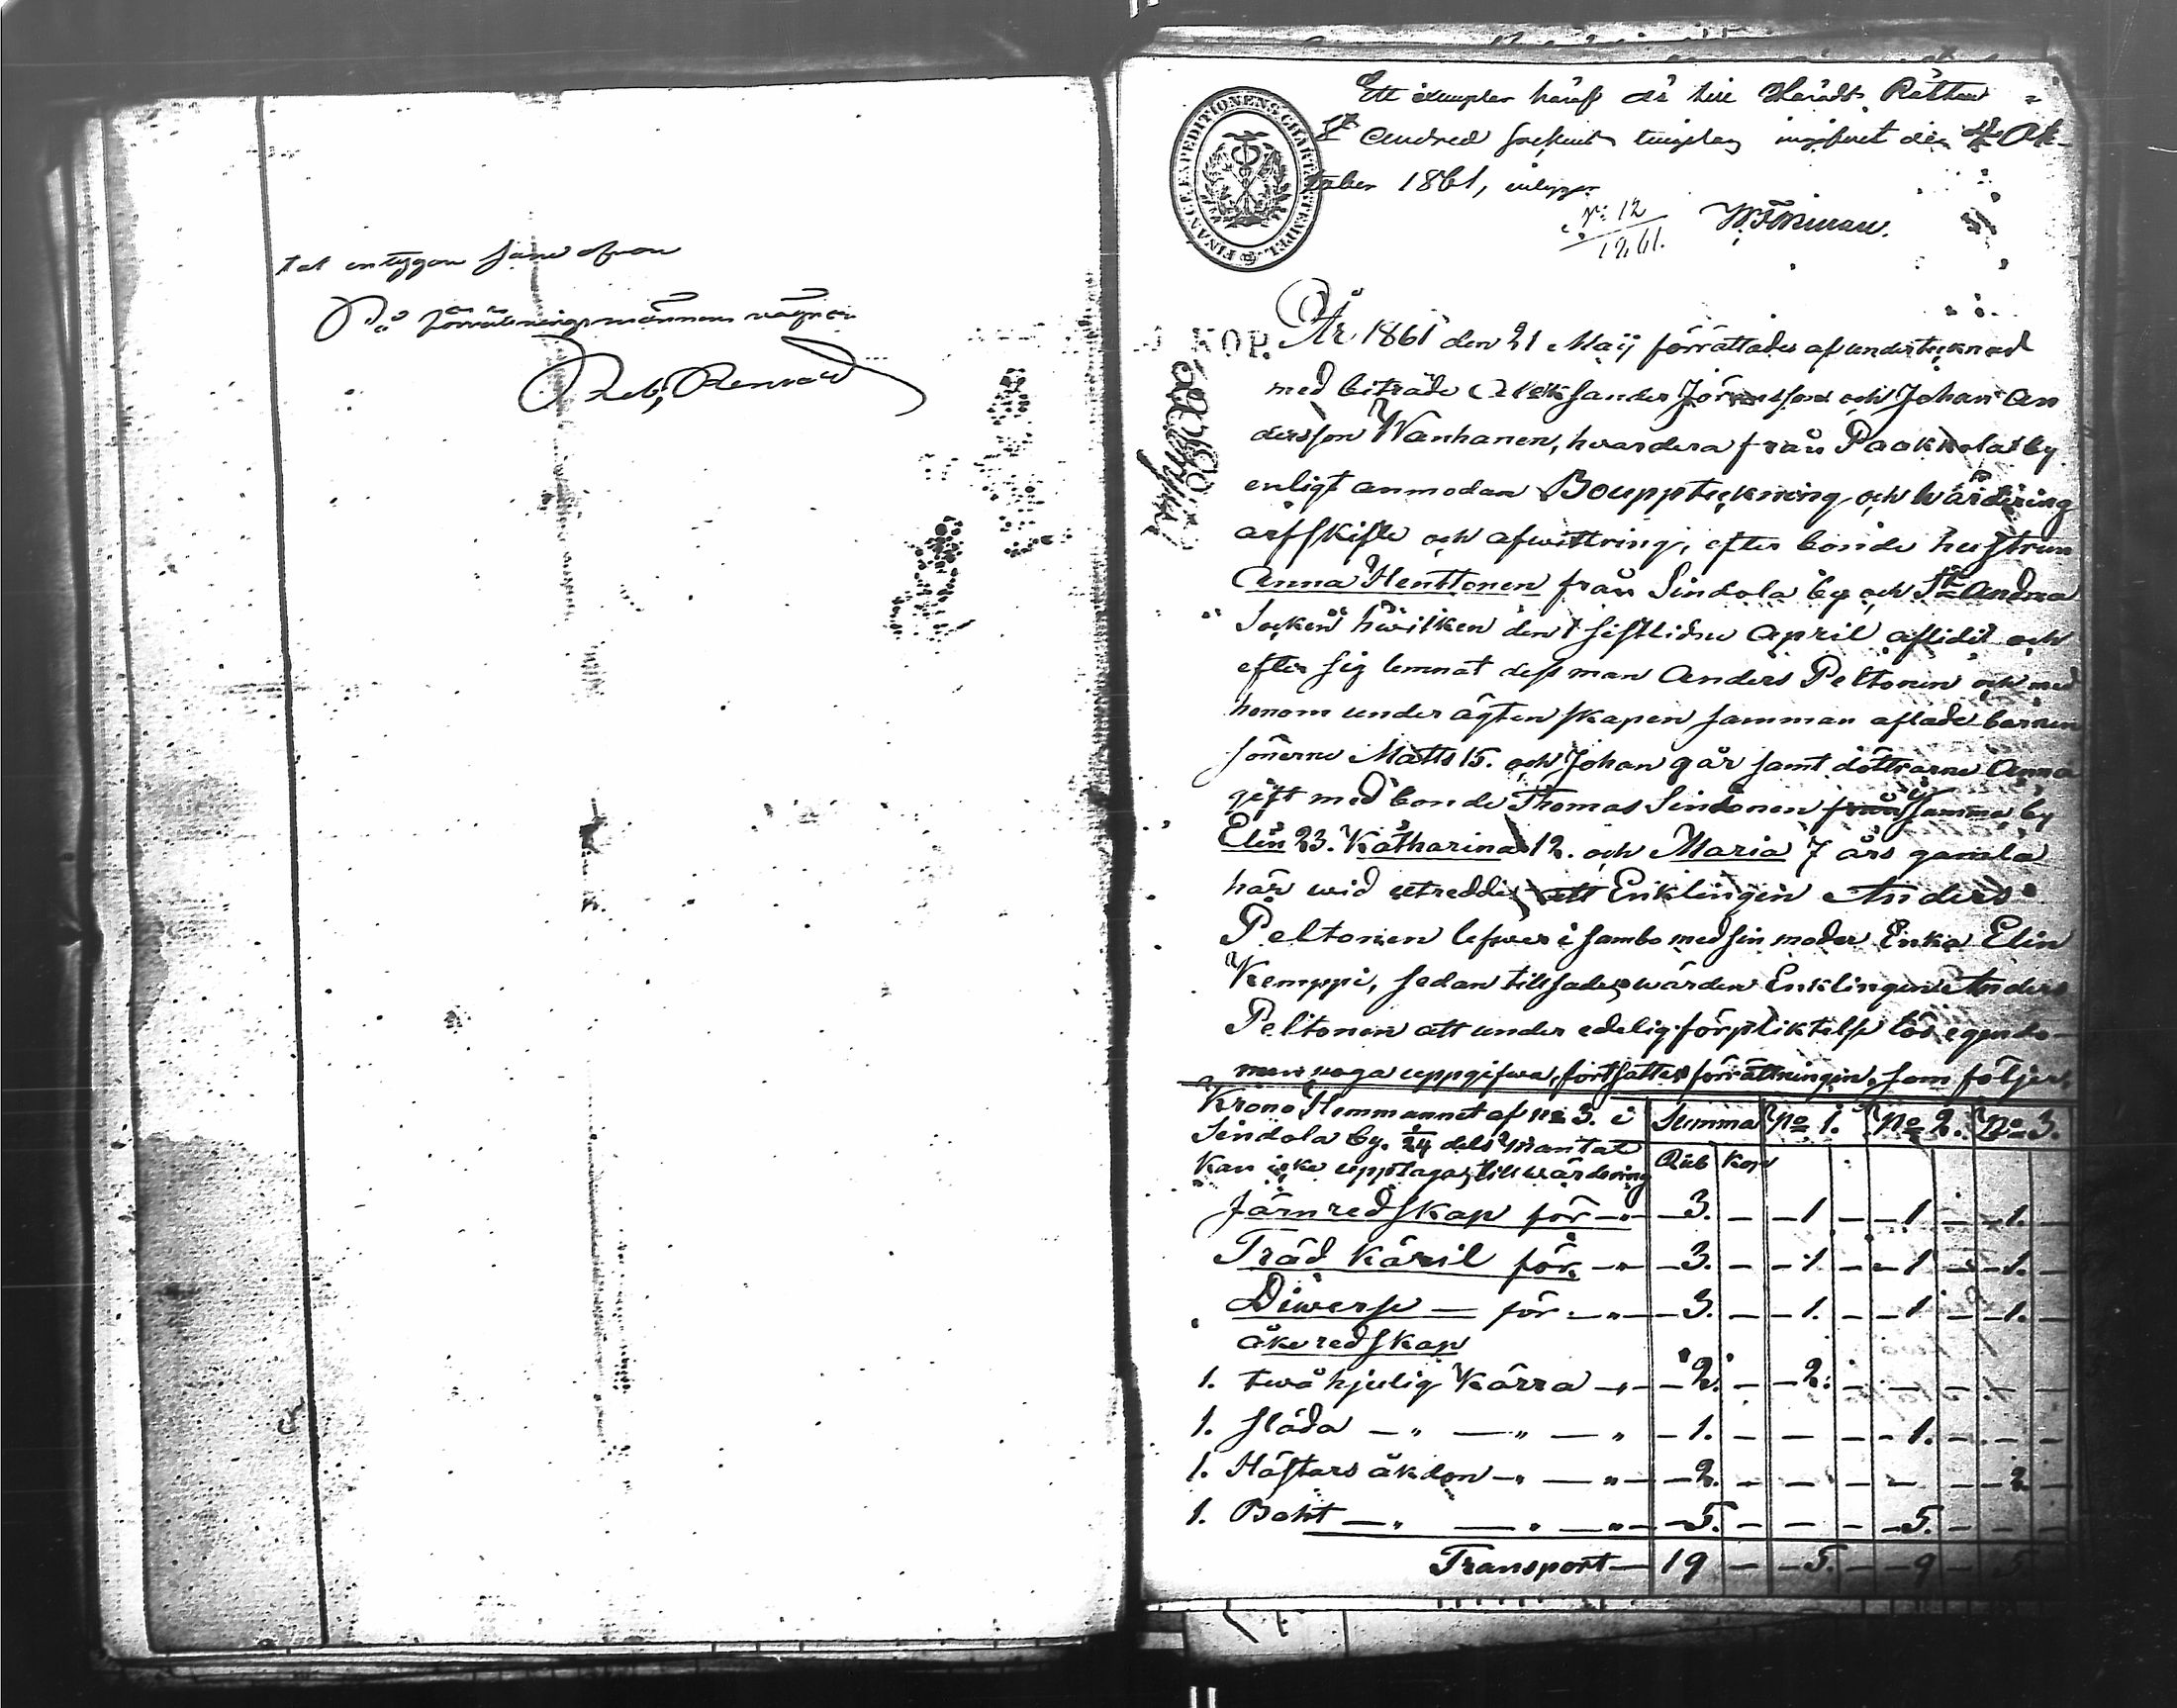 tat intygar som ofvan
På förrättningsmännens vägnar
Rob, Renvald
FINANCE EXPEDITIONENS CHARTÆ STEMPEL
Ett exemplar häraf är till Härads Rätten
St Andreæ sockens tingslag ingifvet den 4 Ok-
tober 1861, intygar
No 12
1861.
KOP.
År 1861 den 21 Maij förrättades af undertecknad
med biträde Aleksander Jörensson och Johan An
dersson Wanhanen, hvardera från Paakkola by
enligt anmodan Bouppteckning och Wärdering
arfskifte och afwittring, efter bonde hustrun
Anna Henttonen från Sindola by och St Andrea
Socken hwilken den 1 sistlidne April aflidit och
efter sig lemnat dess man Anders Peltonen och med
honom under ägtenskapen samman aflade barnen
sönerne Matts 15. och Johan 9 år samt döttrarne Anna
gift med bonde Thomas Sindonen från samma by
Elin 23. Katharina 12. och Maria 7 års gamla
här wid utreddes att Enklingen Anders
Peltonen lefwer i sambo med sin moder Enka Elin
Kemppi, sedan tillsades wärden Enklingen Anders
Peltonen att under edelig förpliktelse lös egendo-
men noga uppgifwa, fortsattes förrättningen, som följer,
Krono Hemmannet af No 3. i Summa No 1. No 2. No 3.
Sindola by. 1/24 dels Mantal
kan icke upptagas till wärdering Rub Kop
Järnredskap för — 3. — 1 — 1 — 1. —
Träd Käril för — 3. — 1. — 1 — 1. —
Diwerse — för — 3. — 1. — 1 — 1. —
åkeredskap
1. twåhjulig Kärra — 2. — 2. — — — — —
1. släda — " — " — " — 1. — — — 1. — — —
1. Hästars åkdon — " — " — 2. — — — — — 2 —
1. Båht — " — " — " — 5. — — — 5. — — —
Transport — 19 — 5. — 9 — 5